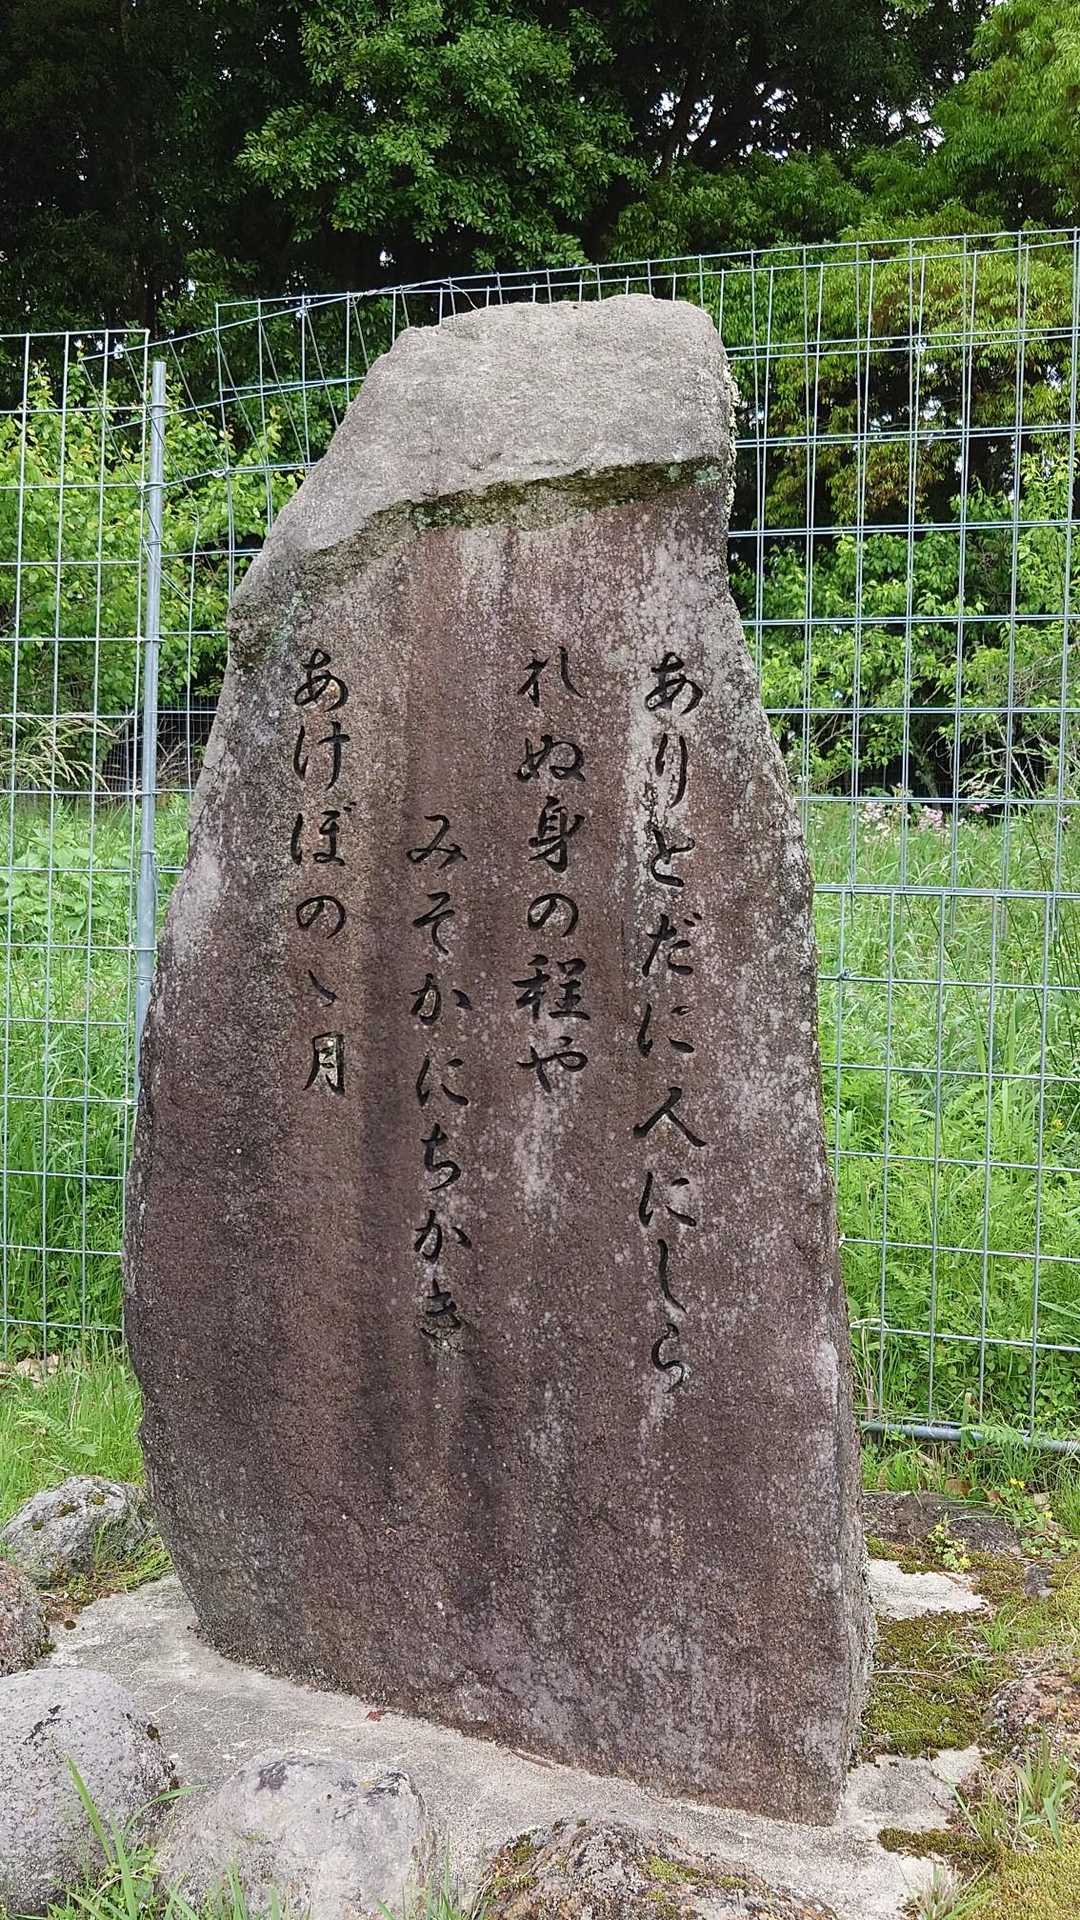 ありとだに人にしら
れぬ身の程や
みそかにちかき
あけぼのゝ月